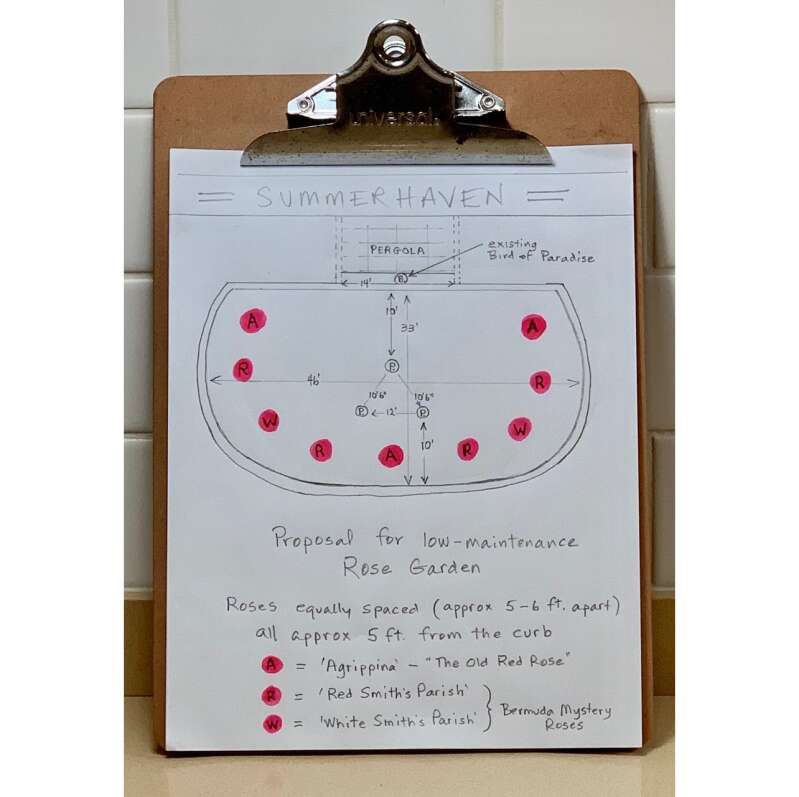 universal.
= SUMMERHAVEN =
PERGOLA
existing
Bird of Paradise
B
14'
10'
33'
A
A
R
R
P
46'
10'6"
10'6"
P
12'
P
W
W
10'
R
A
R
Proposal for low-maintenance
Rose Garden
Roses equally spaced (approx 5-6 ft. apart)
all approx 5 ft. from the curb
A = 'Agrippina' - "The Old Red Rose"
R = 'Red Smith's Parish'
W = 'White Smith's Parish'
Bermuda Mystery
Roses